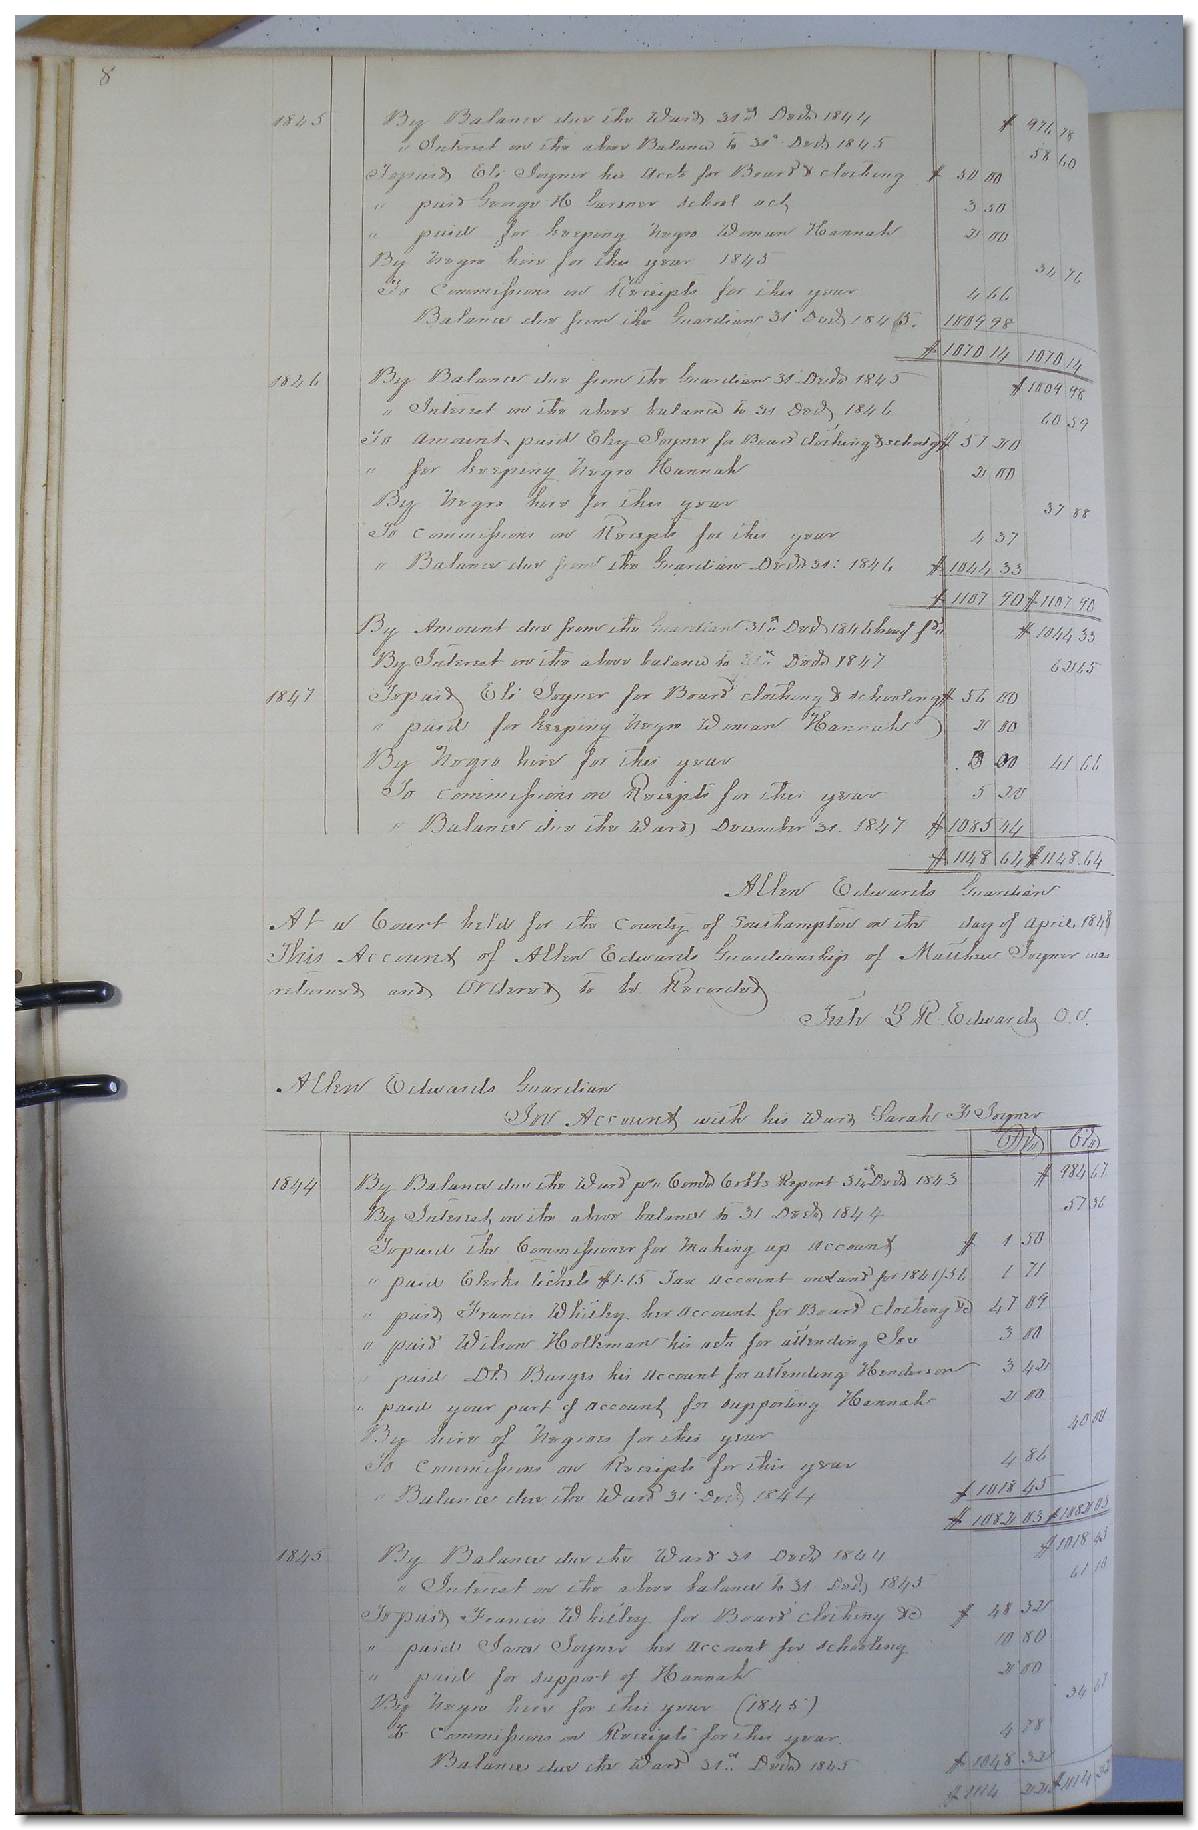 8
1845 By Balance due the Ward 31st Decr 1844 $ 976 78
" Interest on the above Balance to 31st Decr 1845 58 60
To paid Eli Joyner his Acct for Board & clothing $ 50 00
" paid George H Gurner school act 3 50
" paid for keeping Negro Woman Hannah 2 00
By Negro hire for this year 1845 34 76
To Commissions on Receipts for this year 4 66
Balance due from the Guardian 31st Decr 1845. 1009 98
$ 1070 14 1070 14
1846 By Balance due from the Guardian 31st Decr 1845 $ 1009 98
" Interest on the above balance to 31 Decr 1846 60 59
To Amount paid Eley Joyner for Board clothing & schoolg $ 57 20
" for keeping Negro Hannah 2 00
By Negro hire for this year 37 88
To commissions on Receipts for this year 4 37
" Balance due from the Guardian Decr 31st 1846 $ 1044 33
$ 1107 90 $ 1107 90
By Amount due from the Guardian 31st Decr 1846 $ 1044 33
By Interest on the above balance to 31st Decr 1847 62 65
1847 To paid Eli Joyner for Board clothing & schooling $ 56 00
" paid for keeping Negro Woman Hannah 2 00
By Negro hire for this year 41 66
To commissions on Receipts for this year 5 20
" Balance due the Ward December 31. 1847 $ 1085 44
$ 1148 64 $ 1148.64
Allen Edwards Guardian
At a Court held for the County of Southampton on the day of April 1848
This Account of Allen Edwards Guardianship of Matthew Joyner was
returned and Ordered to be Recorded
Teste L R Edwards C.C.
Allen Edwards Guardian
In Account with his Ward Sarah F Joyner
Drs Crs
1844 By Balance due the Ward pr Comr Cobbs Report 31st Decr 1843 $ 984 67
By Interest on the above balance to 31 Decr 1844 57 36
To paid the Commissioner for Making up Account $ 1 50
" paid Clerks tickets $1.15 Tax Account on Land for 1841/56 1 71
" paid Francis Whitley her Account for Board Clothing &c 47 09
" paid Wilson Holleman his acct for attending Joe 3 00
" paid Dr Burges his Account for attending Henderson 3 42
" paid your part of account for supporting Hannah 2 00
By hire of Negroes for this year 40 00
To Commissions on Receipts for this year 4 86
" Balance due the Ward 31st Decr 1844 $ 1018 45
$ 1082 03 $ 1082 03
1845 By Balance due the Ward 31 Decr 1844 $ 1018 45
" Interest on the above balance to 31 Decr 1845 61 10
To paid Francis Whitley for Board clothing &c $ 48 32
" paid Joyner her Account for schooling 10 80
" paid for support of Hannah 2 00
By Negro hire for this year (1845) 34 67
To Commissions on Receipts for this year. 4 78
Balance due the Ward 31st Decr 1845 $ 1048 32
$ 1114 22 $ 1114 22